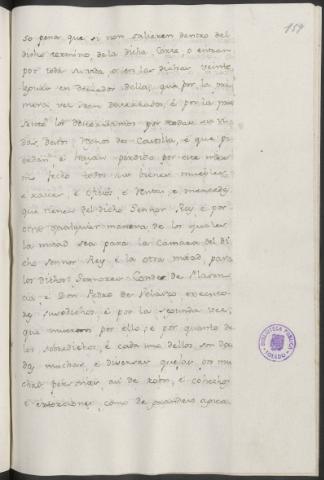 159
so pena que si non salieren dentro del
dicho termino, de la dicha Corte, o entraren
por toda su vida o en las dichas veinte
leguas en derredor dellas, que por la pri
mera vez sean desterrados, é por la pre
sente los desterramos por todas sus vi
das, destos Reynos de Castilla, é que pi
erdan é hayan perdido por este mes
mo fecho todos sus bienes muebles,
é raíces, é oficios é rentas é mercedes
que tienen del dicho Señor Rey é por
otra qualquier manera de los quales
la mitad sea para la Camara del di
cho Señor Rey é la otra mitad para
los dichos Señores Condes de Plasen
cia é Don Pedro de Velasco executo
res susodichos, é por la segunda vez,
que mueran por ello; é por quanto de
los sobredichos, é cada uno dellos son da
das muchas, é diversas quejas por mu
chas personas, asi de robos, é cohechos
é extorciones, como de grandes agra
BIBLIOTECA PUBLICA
TOLEDO